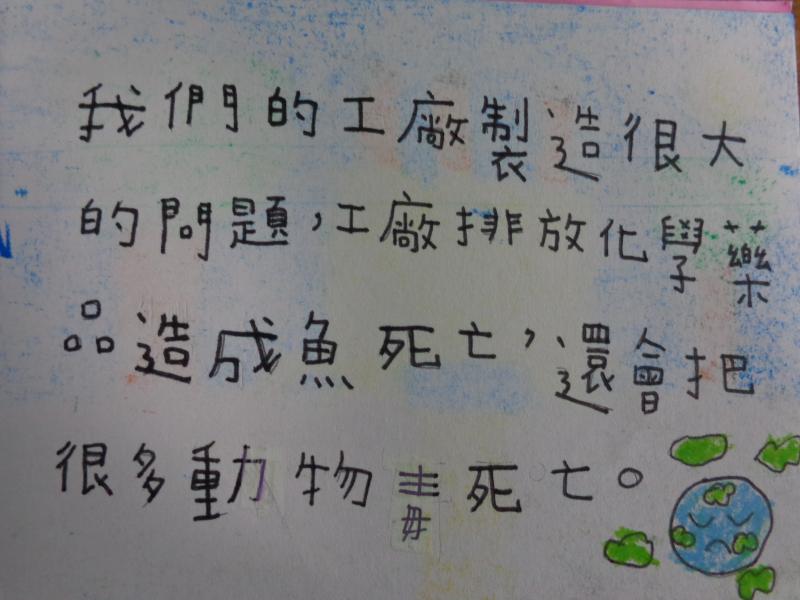 我們的工廠製造很大
的問題，工廠排放化學藥
品造成魚死亡，還會把
很多動物毒死亡。